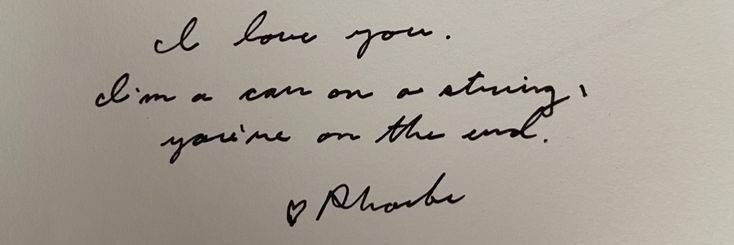 I love you.
I'm a can on a string,
you're on the end.
♡ Phoebe